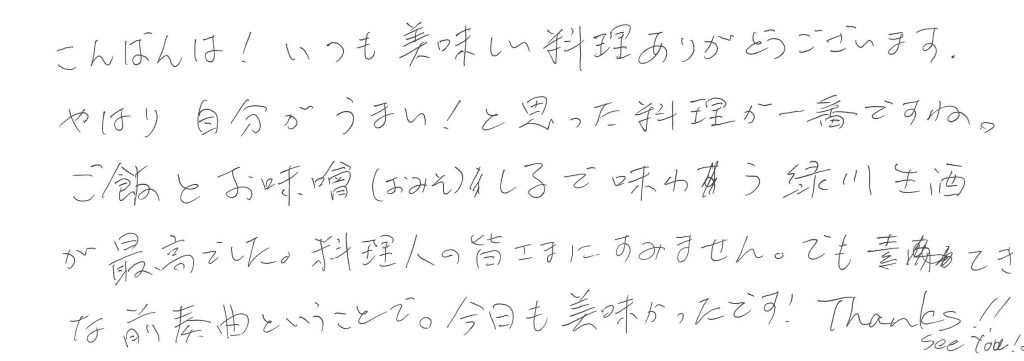 こんばんは！いつも美味しい料理ありがとうございます.
やはり自分がうまい！と思った料理が一番ですね。
ご飯とお味噌(おみそ)しるで味わう緑川生酒
が最高でした。料理人の皆さまにすみません。でも素てき
な前奏曲ということで。今日も美味かったです！Thanks!!
See You!